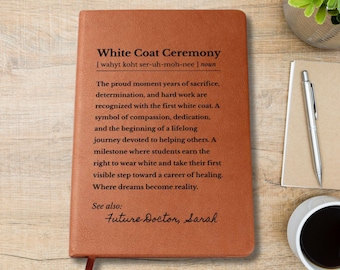 White Coat Ceremony
[ wahyt koht ser-uh-moh-nee ] noun
The proud moment years of sacrifice,
determination, and hard work are
recognized with the first white coat. A
symbol of compassion, dedication,
and the beginning of a lifelong
journey devoted to helping others. A
milestone where students earn the
right to wear white and take their first
visible step toward a career of healing.
Where dreams become reality.
See also:
Future Doctor, Sarah